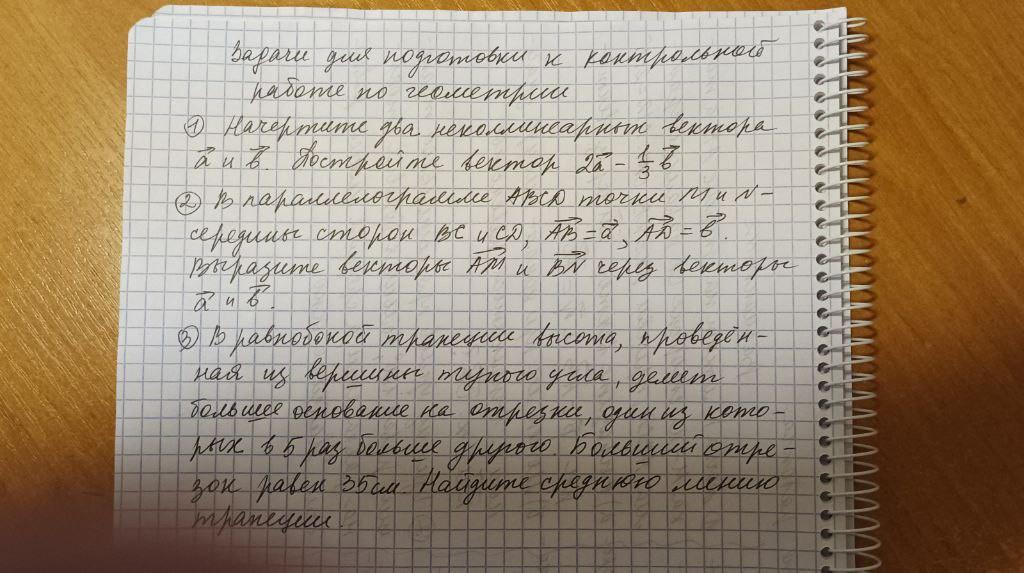 Задачи для подготовки к контрольной
работе по геометрии
① Начертите два неколлинеарных вектора
a⃗ и b⃗. Постройте вектор 2a⃗ - 1/3 b⃗
② В параллелограмме ABCD точки M и N -
середины сторон BC и CD, AB⃗ = a⃗, AD⃗ = b⃗.
Выразите векторы AM⃗ и BN⃗ через векторы
a⃗ и b⃗.
③ В равнобокой трапеции высота, проведён-
ная из вершины тупого угла, делит
большее основание на отрезки, один из кото-
рых в 5 раз больше другого. Больший отре-
зок равен 35 см. Найдите среднюю линию
трапеции.